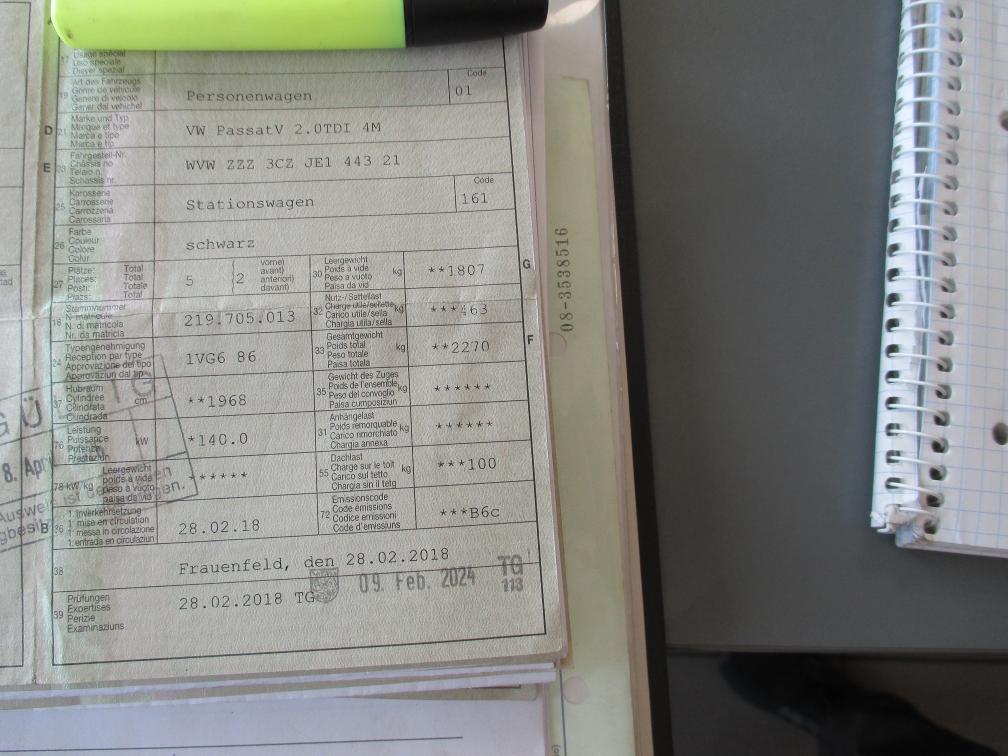 17 Usage spécial
Uso speciale
Diever spezial
19 Art des Fahrzeugs
Genre de véhicule
Genere di veicolo
Gener dal vehichel
Personenwagen
Code
01
D 21 Marke und Typ
Marque et type
Marca e tipo
Marca e tip
VW PassatV 2.0TDI 4M
E 23 Fahrgestell-Nr.
Châssis no
Telaio n.
Schassis nr.
WVW ZZZ 3CZ JE1 443 21
25 Karosserie
Carrosserie
Carrozzeria
Carossaria
Stationswagen
Code
161
26 Farbe
Couleur
Colore
Colur
schwarz
27 Plätze: Total
Places: Total
Posti: Totale
Plazs: Total
5 (2 vorne)
avant)
anteriori)
davant)
30 Leergewicht
Poids à vide
Peso a vuoto
Paisa da vid
kg
**1807
G
18 Stammnummer
N matricule
N. di matricola
Nr. da matricla
219.705.013
32 Nutz-/Sattellast
Charge utile/sellette
Carico utile/sella
Chargia utila/sella
kg
***463
24 Typengenehmigung
Réception par type
Approvazione del tipo
Approvaziun dal tip
1VG6 86
33 Gesamtgewicht
Poids total
Peso totale
Paisa totala
kg
**2270
F
37 Hubraum
Cylindrée
Cilindrata
Cilindrada
cm
**1968
35 Gewicht des Zuges
Poids de l'ensemble
Peso del convoglio
Paisa cumposiziun
kg
******
76 Leistung
Puissance
Potenza
Prestaziun
kW
*140.0
31 Anhängelast
Poids remorquable
Carico rimorchiato
Chargia annexa
kg
******
78 kW/kg Leergewicht
poids à vide
peso a vuoto
paisa da vid
*****
55 Dachlast
Charge sur le toit
Carico sul tetto
Chargia sin il tetg
kg
***100
B 36 1. Inverkehrsetzung
1 mise en circulation
1 messa in circolazione
1. entrada en circulaziun
28.02.18
72 Emissionscode
Code émissions
Codice emissioni
Code d'emissiuns
***B6c
38
Frauenfeld, den 28.02.2018
09. Feb. 2024
TG
113
39 Prüfungen
Expertises
Perizie
Examinaziuns
28.02.2018 TG
GÜ
TG
8. Apri
Ausweis ist
gen.
08-3538516